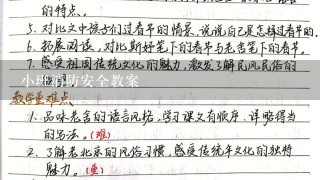 的特点。
5. 对比文中孩子们过春节的情景,说说自己是怎样过春节的。
6. 拓展阅读,对比斯好笔下的春节与老舍笔下的春节。
7. 感受祖国传统文化的魅力,激发了解民风民俗的
小班消防安全教案
教学重难点
1. 品味老舍的语言风格,学习课文有顺序、详略得当
的写法。(难)
2. 了解老北京的风俗习惯,感受传统年文化的独特
魅力。(重)